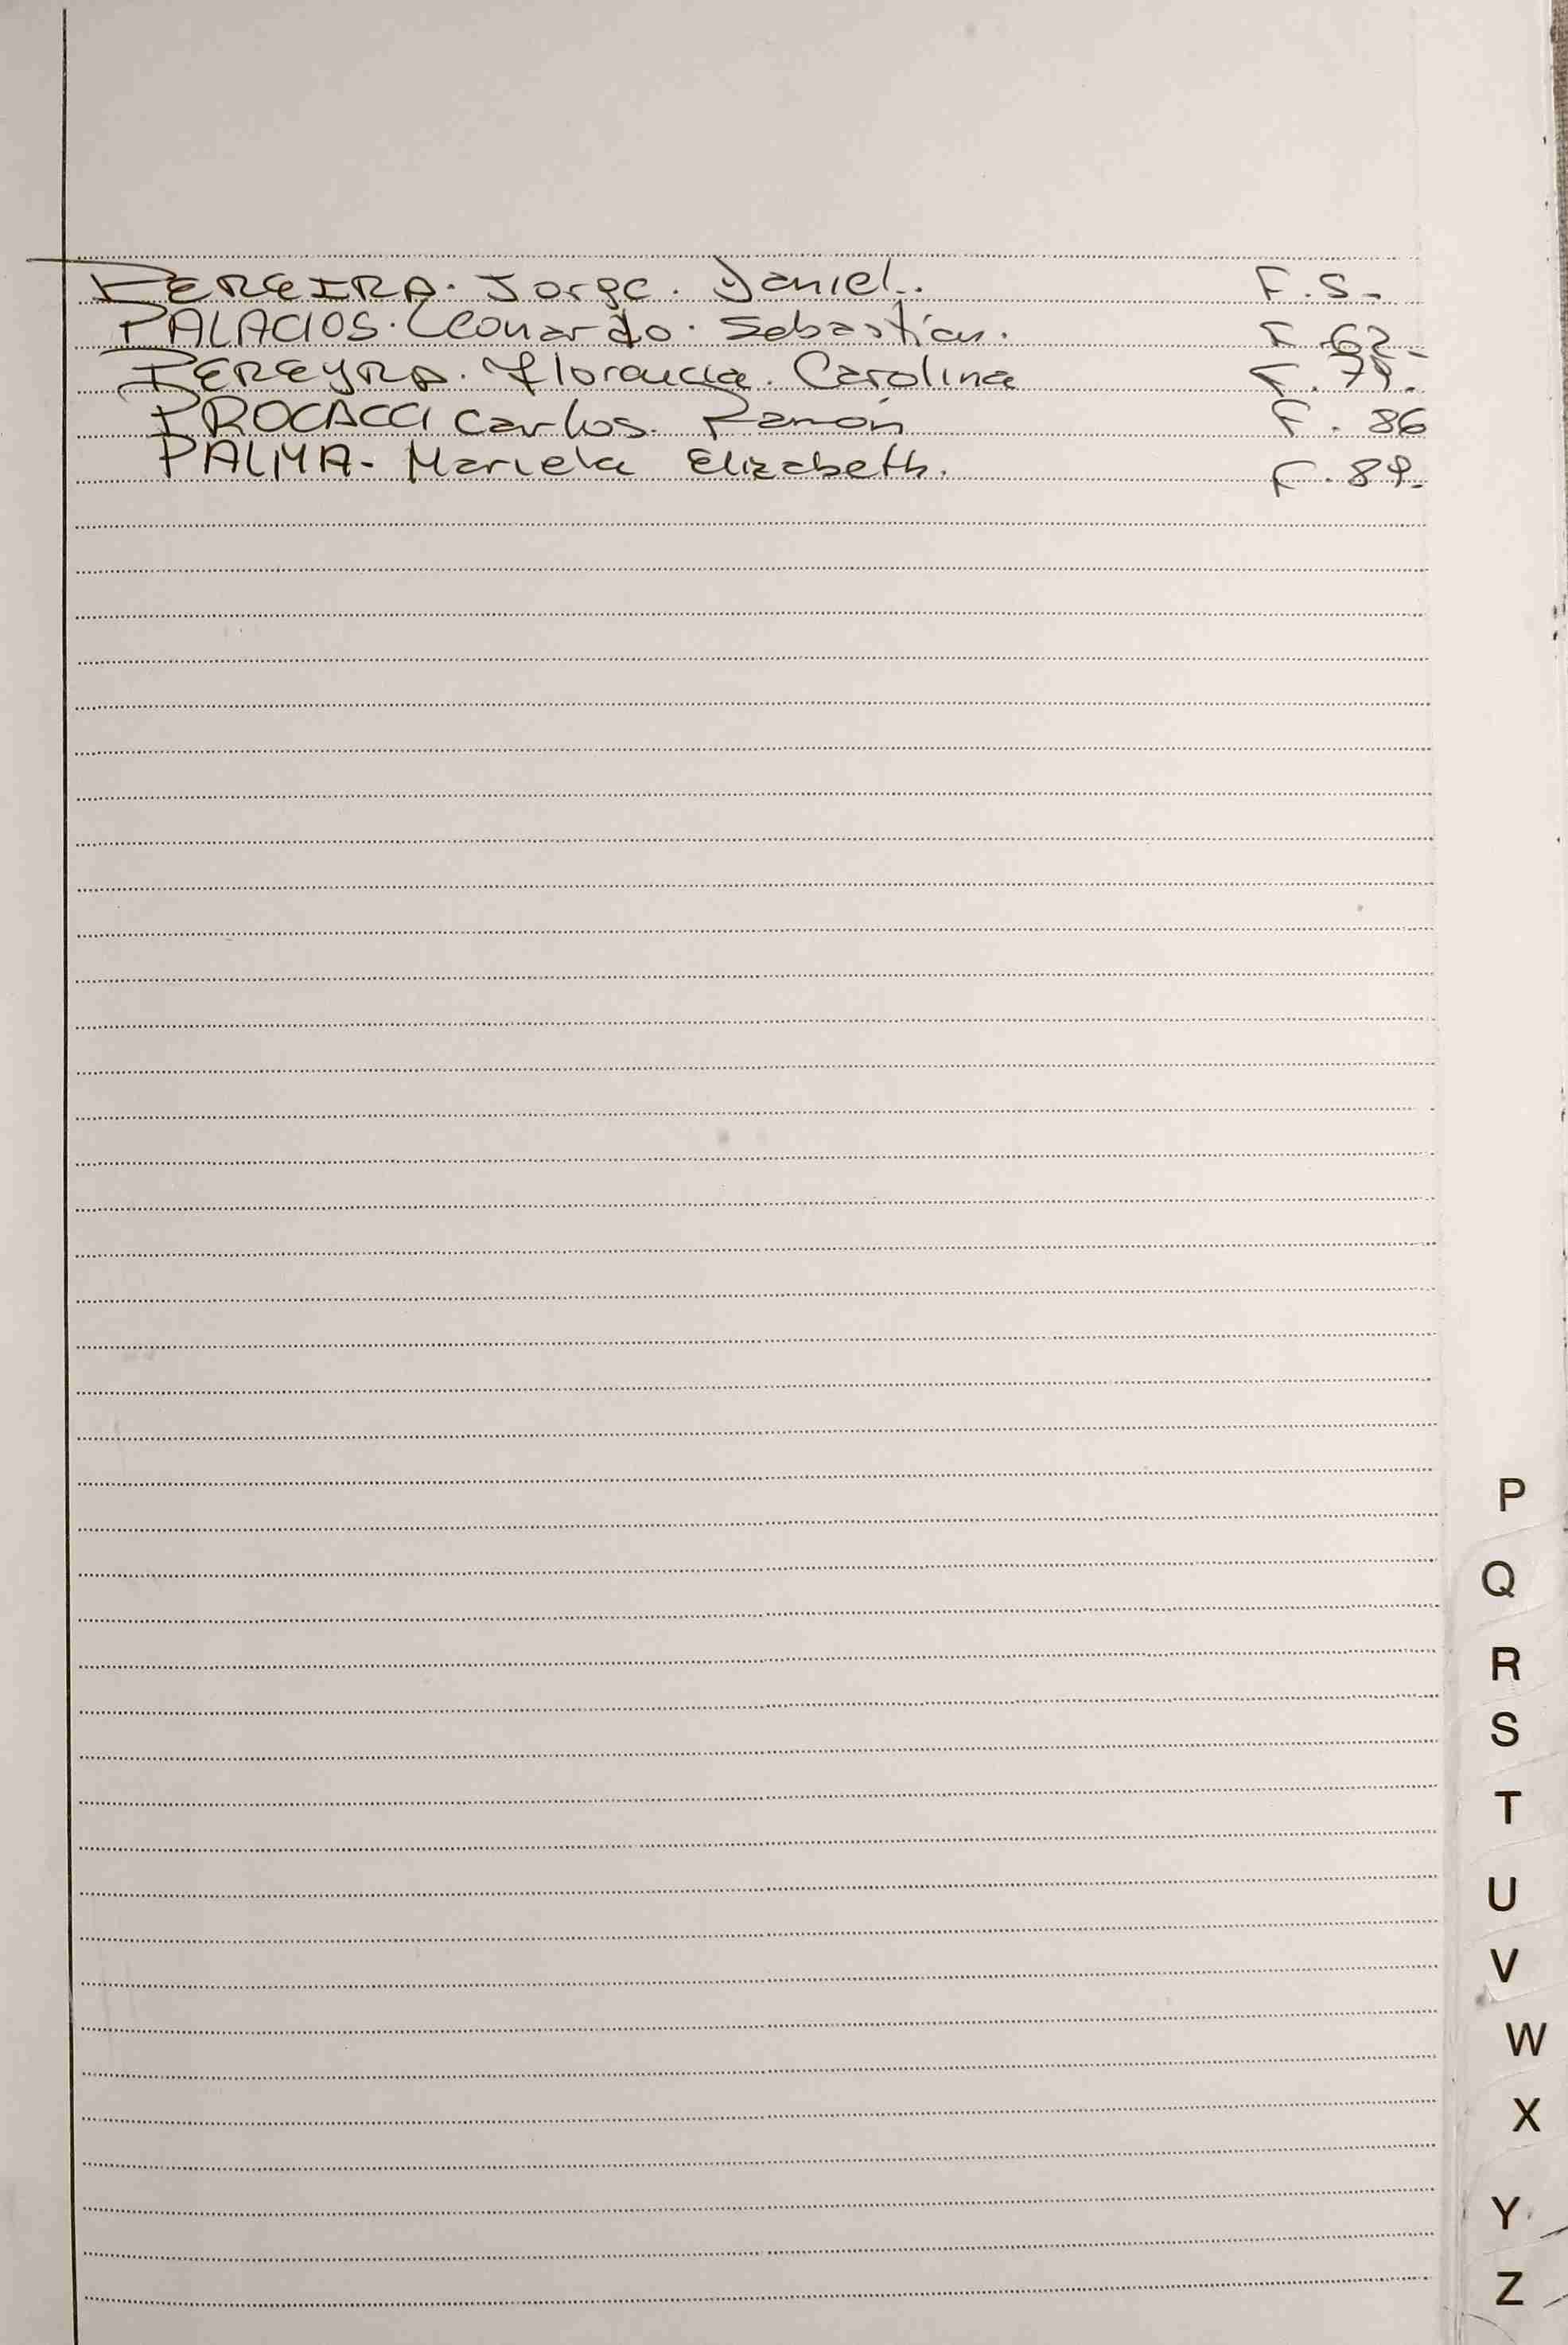 PEREIRA. Jorge. Daniel. F. 5-
PALACIOS. Leonardo. Sebastian. F. 62-
PEREYRA. Florencia. Carolina F. 79.
PROCACCI Carlos. Ramón F. 86
PALMA- Mariela Elizabeth. F. 89-
P
Q
R
S
T
U
V
W
X
Y
Z